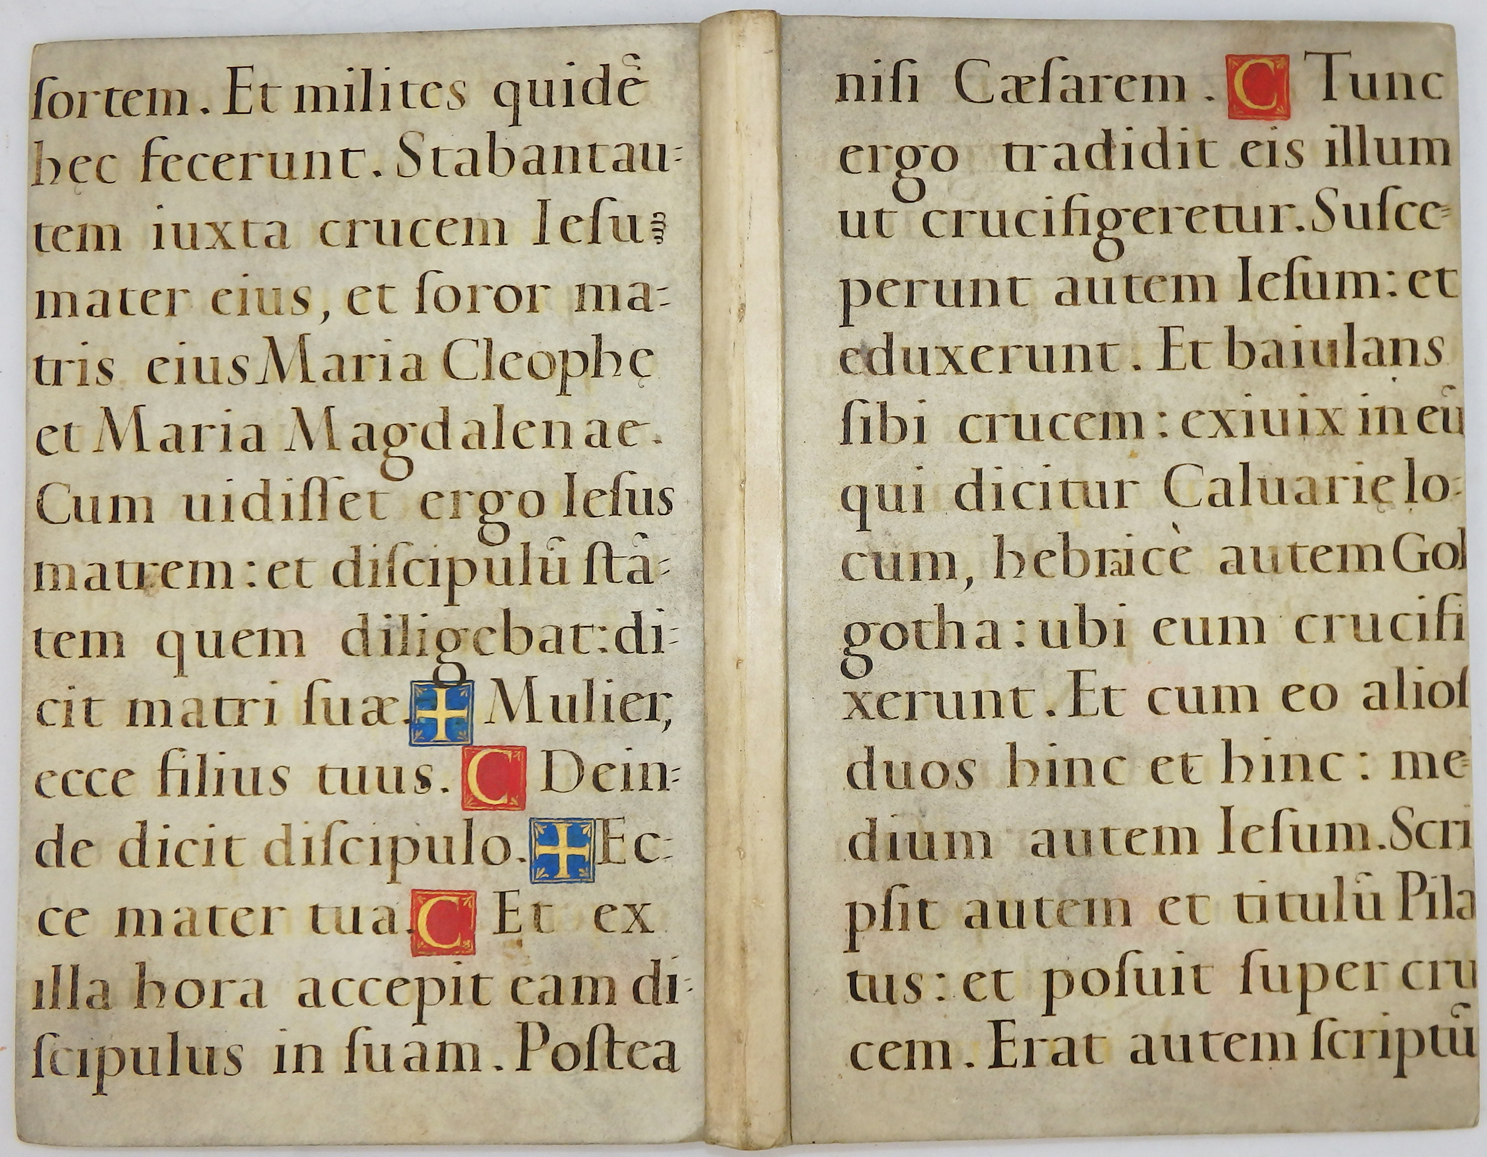 ſortem. Et milites quidē
hęc fecerunt. Stabant au=
tem iuxta crucem Ieſu
mater eius, et ſoror ma=
tris eius Maria Cleophę
et Maria Magdalenae.
Cum uidiſſet ergo Ieſus
matrem: et diſcipulū ſtā=
tem quem diligebat: di=
cit matri ſuæ. + Mulier,
ecce filius tuus. C Dein=
de dicit diſcipulo. + Ec=
ce mater tua. C Et ex
illa hora accepit eam di=
ſcipulus in ſuam. Poſtea
niſi Cæſarem. C Tunc
ergo tradidit eis illum
ut crucifigeretur. Suſce=
perunt autem Ieſum: et
eduxerunt. Et baiulans
ſibi crucem: exiuix in eū
qui dicitur Caluarię lo=
cum, hebraicè autem Gol
gotha: ubi eum crucifi
xerunt. Et cum eo alioſ
duos hinc et hinc: me=
dium autem Ieſum. Scri
pſit autem et titulū Pila
tus: et poſuit ſuper cru
cem. Erat autem ſcriptū